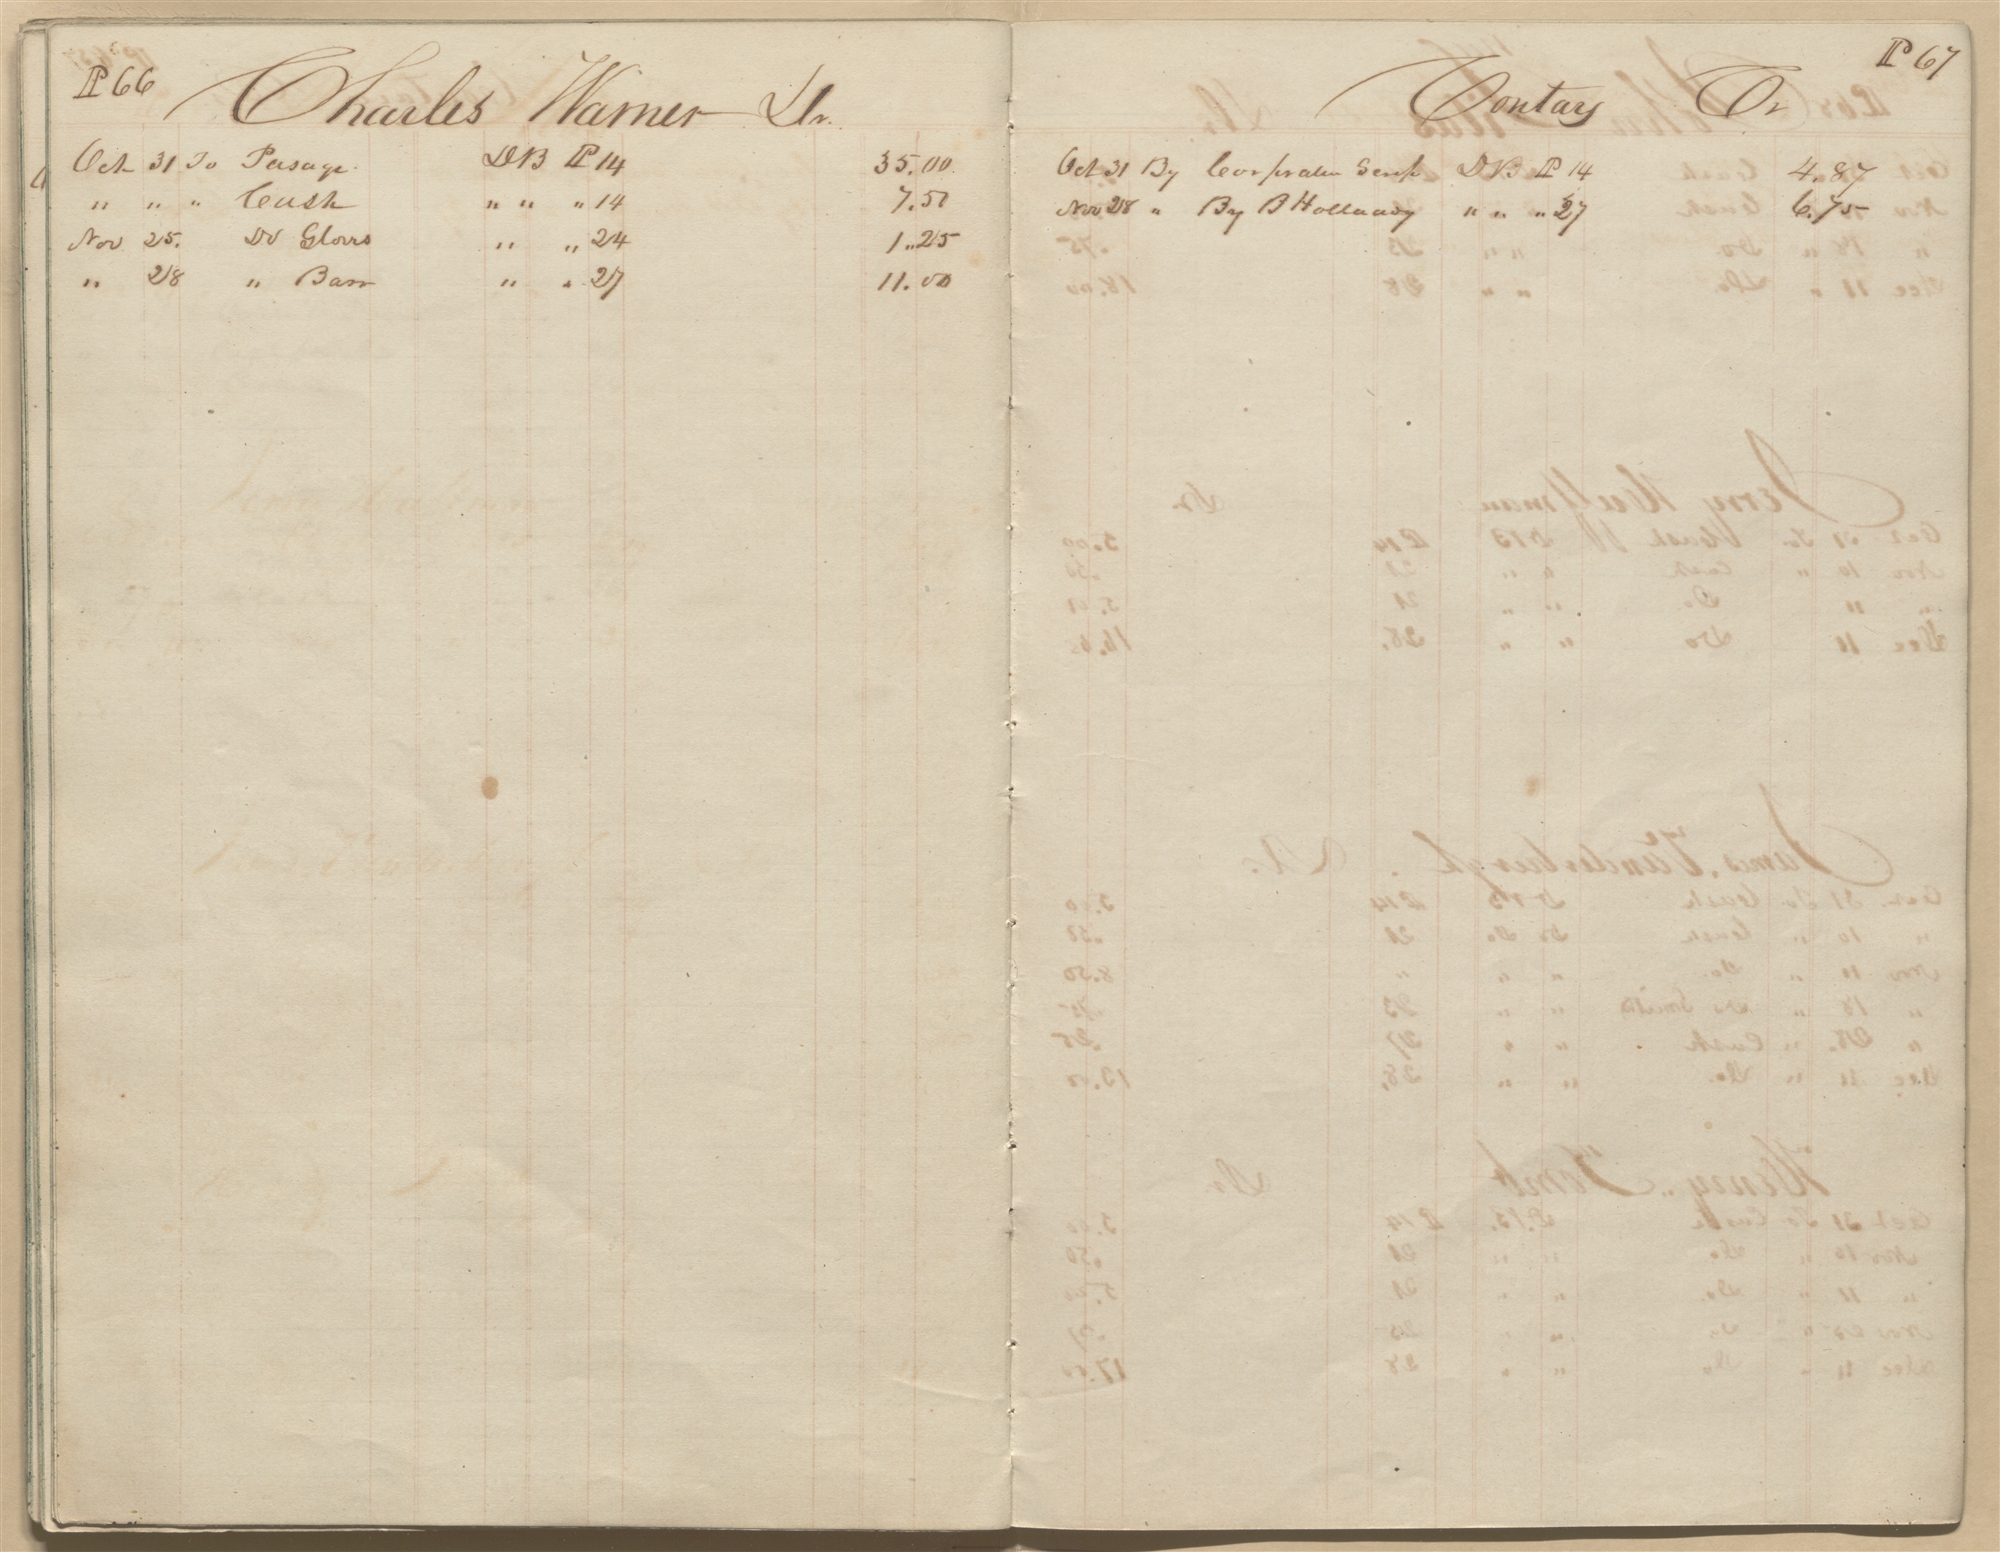 P 66
Charles Warner Dr.
Oct 31 To Pasage. DB P 14 35.00
" " " Cash " " " 14 7.50
Nov 25. Do Gloves " " 24 1.25
" 28 " Barr " " 27 11.00
P 67
Contary Cr
Oct 31 By Corpration Scrip DB P 14 4.87
Nov 28 " By B Holladay " " " 27 6.75